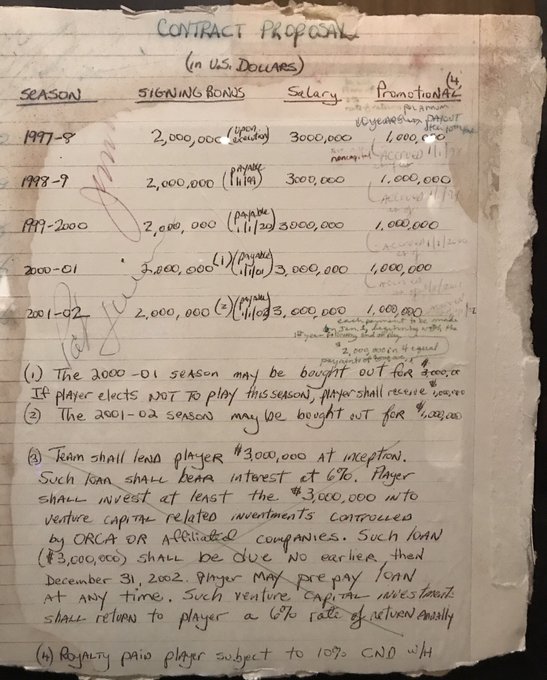 CONTRACT PROPOSAL
(IN U.S. DOLLARS)
SEASON SIGNING BONUS Salary PROMOTIONAL (4)
10 years PAYOUT
1997-8 2,000,000 (upon execution) 3000,000 1,000,000
(ACCRUED 1/1/
1998-9 2,000,000 (payable 1/1/99) 3000,000 1,000,000
(ACCRUED
1999-2000 2,000,000 (payable 1/1/20) 3000,000 1,000,000
(ACCRUED 1/1/2000
2000-01 2,000,000 (1) (payable 1/1/01) 3,000,000 1,000,000
2001-02 2,000,000 (2) (payable 1/1/02) 3,000,000 1,000,000
each payment to be made
on Jan 1, beginning with the
1st year following end of play
$2,000,000 in 4 equal
payments of
(1) The 2000-01 season may be bought out for
If player elects NOT TO play this season, player shall receive $1,000,000
(2) The 2001-02 season may be bought out for $1,000,000
(3) Team shall lend player $3,000,000 at inception.
Such loan shall bear interest at 6%. Player
shall invest at least the $3,000,000 into
venture capital related investments controlled
by ORCA or affiliated companies. Such loan
($3,000,000) shall be due no earlier then
December 31, 2002. Player may prepay loan
at any time. Such venture capital investments
shall return to player a 6% rate of return annually
(4) Royalty paid player subject to 10% CND W/H